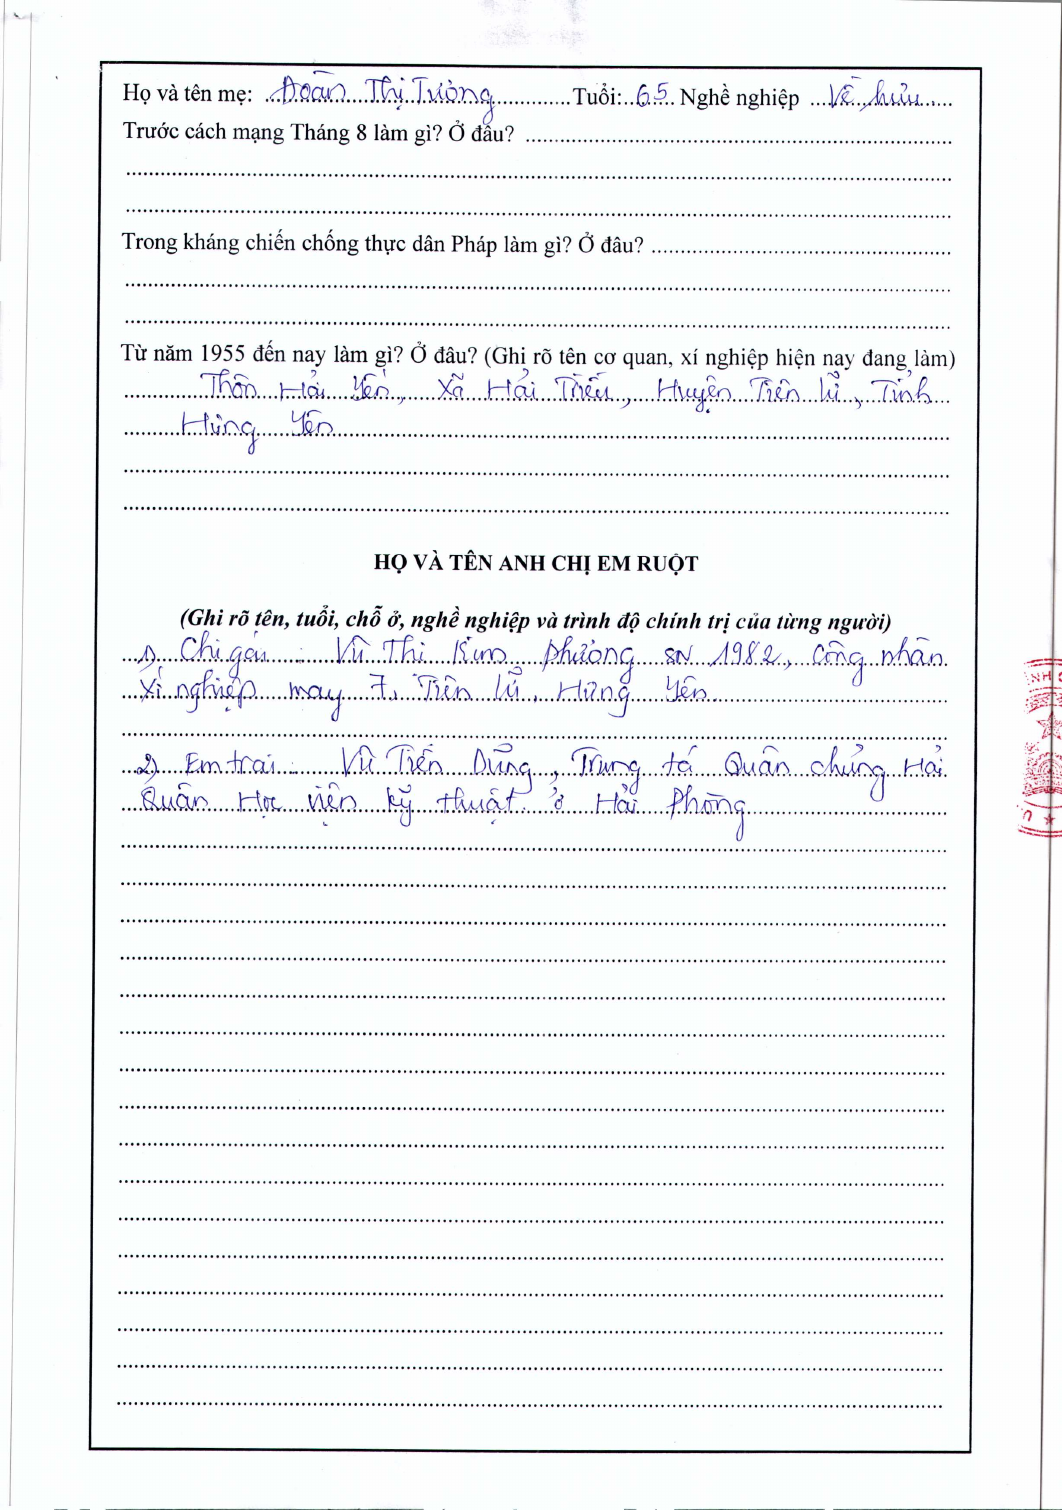 Họ và tên mẹ: Đoàn Thị Tường Tuổi: 65 Nghề nghiệp Về hưu
Trước cách mạng Tháng 8 làm gì? Ở đâu?
Trong kháng chiến chống thực dân Pháp làm gì? Ở đâu?
Từ năm 1955 đến nay làm gì? Ở đâu? (Ghi rõ tên cơ quan, xí nghiệp hiện nay đang làm)
Thôn Hải Yến, Xã Hải Triều, Huyện Tiên Lữ, Tỉnh
Hưng Yên
HỌ VÀ TÊN ANH CHỊ EM RUỘT
(Ghi rõ tên, tuổi, chỗ ở, nghề nghiệp và trình độ chính trị của từng người)
1) Chị gái : Vũ Thị Kim Phương SN 1982, Công nhân
Xí nghiệp may 7, Tiên Lữ, Hưng Yên
2) Em trai : Vũ Tiến Dũng, Trung tá Quân chủng Hải
Quân Học viện kỹ thuật ở Hải Phòng